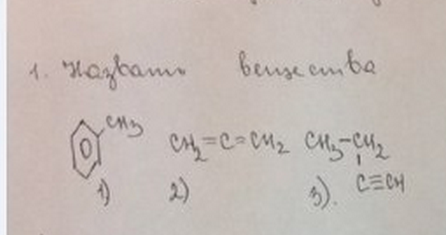 1. Назвать вещества
CH3 CH2=C=CH2 CH3-CH2
C≡CH
1) 2) 3).